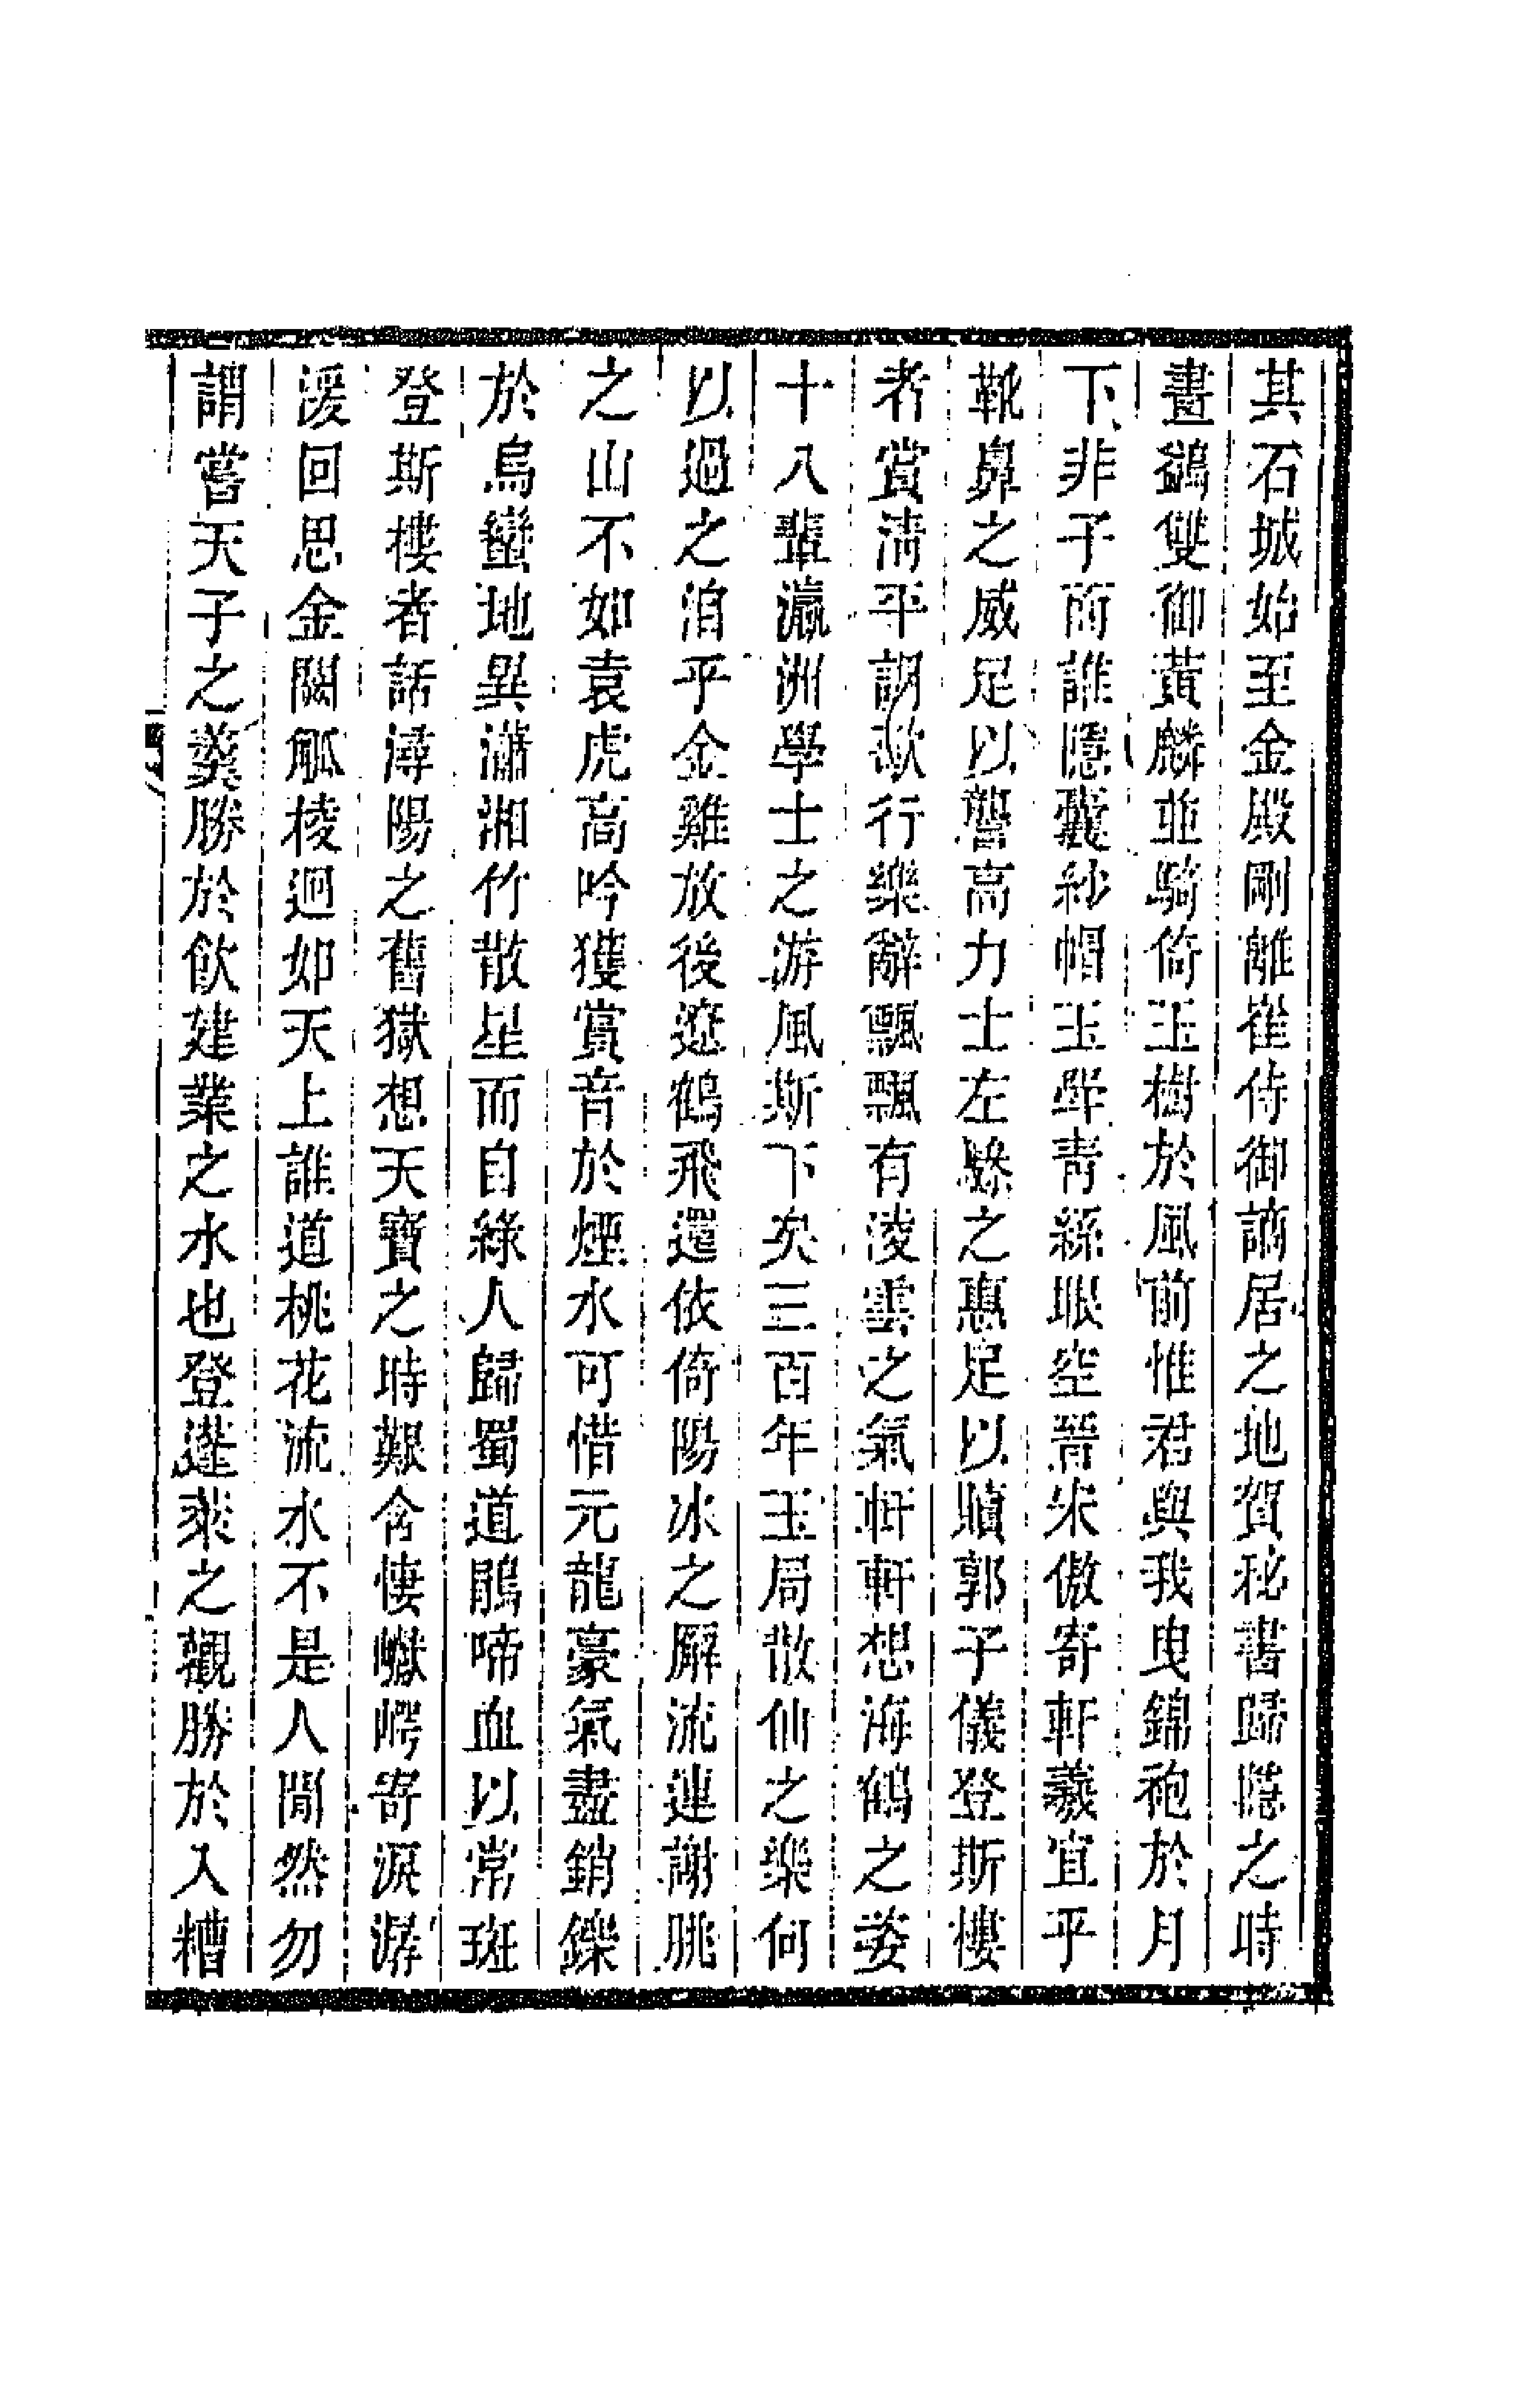 其石城始至金殿剛離崔侍御謫居之地賀秘書歸隱之時
畫鷁雙御黃麟並騎倚玉樹於風前惟君與我曳錦袍於月
下非子而誰隱囊紗帽玉斝青絲眼空晉宋傲寄軒羲宜乎
靴鼻之威足以讋高力士左驂之惠足以贖郭子儀登斯樓
者賞淸平調歌行樂辭飄飄有淩雲之氣軒軒想海鶴之姿
十八輩瀛洲學士之游風斯下矣三百年玉局散仙之樂何
以過之洎乎金雞放後遼鶴飛還依倚陽冰之廨流連謝朓
之山不如袁虎高吟獲賞音於煙水可惜元龍豪氣盡銷鑠
於烏蠻地異瀟湘竹散星而自綠人歸蜀道鵑啼血以常斑
登斯樓者話潯陽之舊獄想天寶之時艱含悽巘崿寄淚潺
湲回思金闕觚稜迥如天上誰道桃花流水不是人間然勿
謂嘗天子之羹勝於飲建業之水也登蓬萊之觀勝於入糟